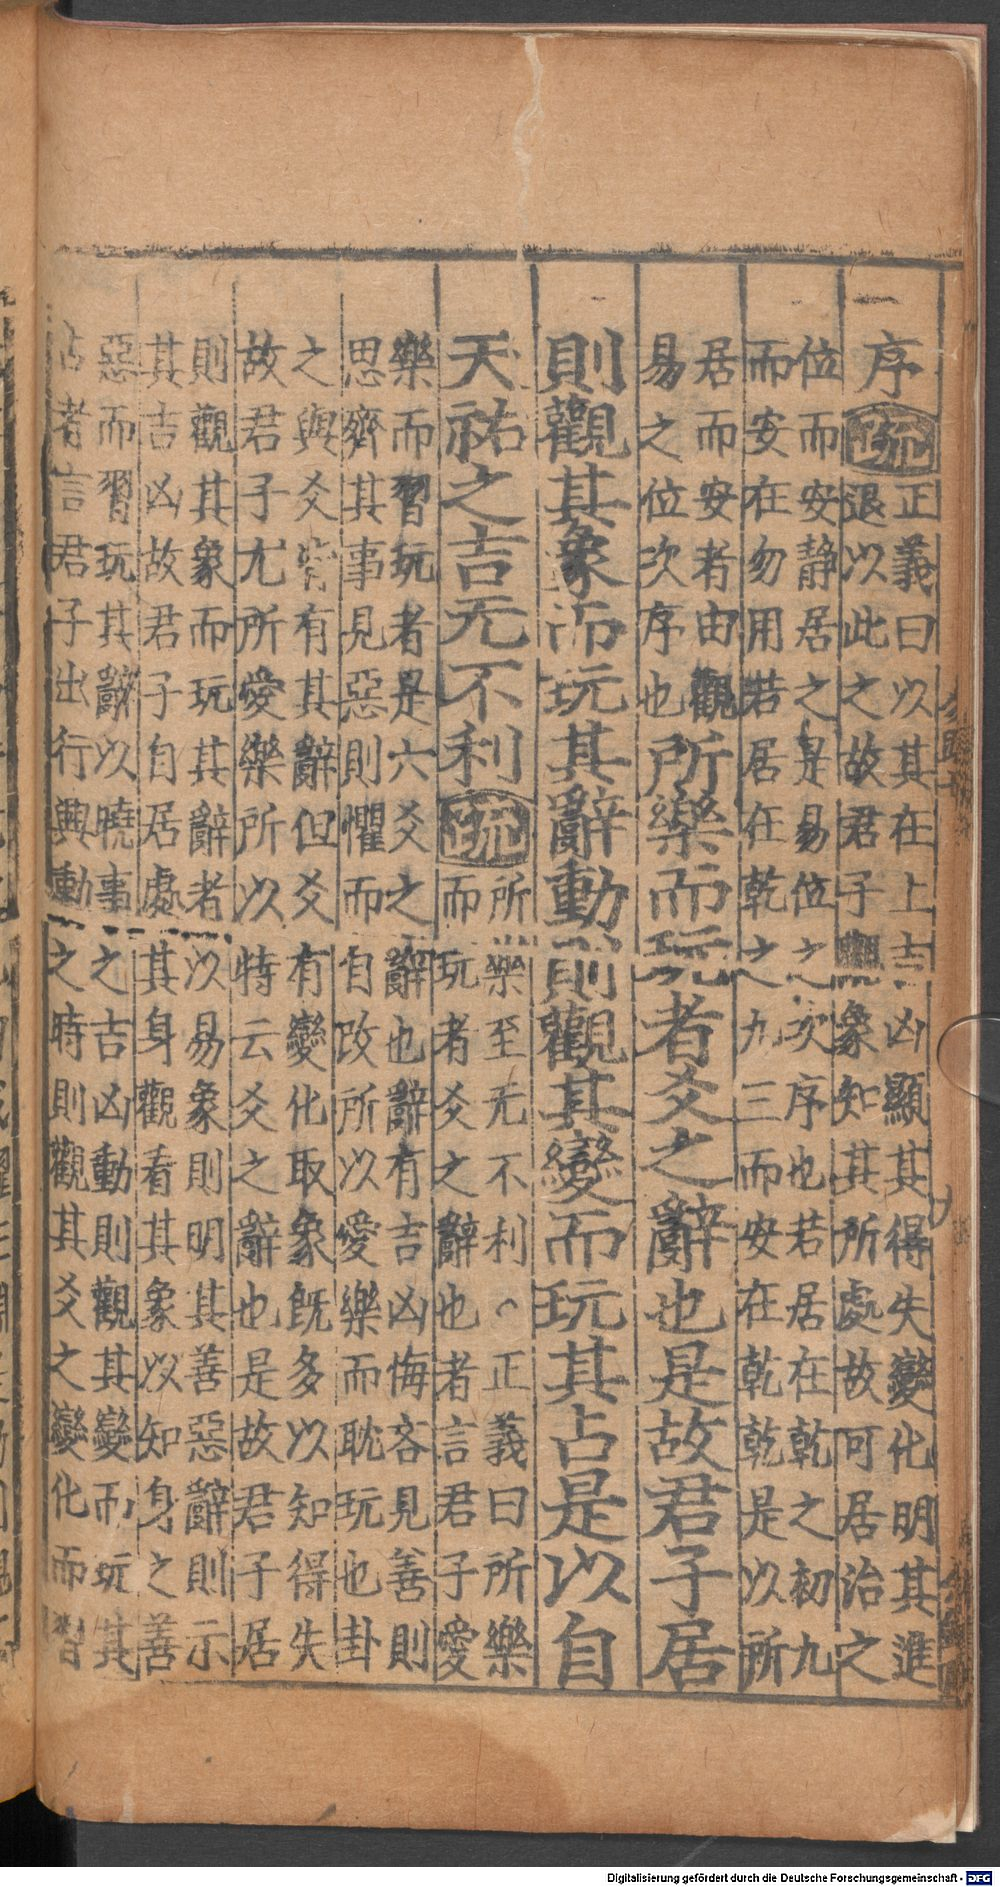 序
疏
正義曰以其在上吉凶顯其得失變化明其進
退以此之故君子觀象知其所處故可居治之
位而安静居之是易位之次序也若居在乾之初九
而安在勿用若居在乾之九三而安在乾乾是以所
居而安者由觀
易之位次序也
所樂而玩者爻之辭也是故君子居
則觀其象而玩其辭動則觀其變而玩其占是以自
天祐之吉无不利
疏
所樂至无不利○正義曰所樂
而玩者爻之辭也者言君子愛
樂而習玩者是六爻之辭也辭有吉凶悔吝見善則
思齊其事見惡則懼而自改所以愛樂而耽玩也卦
之與爻皆有其辭但爻有變化取象既多以知得失
故君子尤所愛樂所以特云爻之辭也是故君子居
則觀其象而玩其辭者以易象則明其善惡辭則示
其吉凶故君子自居處其身觀看其象以知身之善
惡而習玩其辭以曉事之吉凶動則觀其變而玩其
占者言君子出行興動之時則觀其爻之變化而習
Digitalisierung gefördert durch die Deutsche Forschungsgemeinschaft - DFG